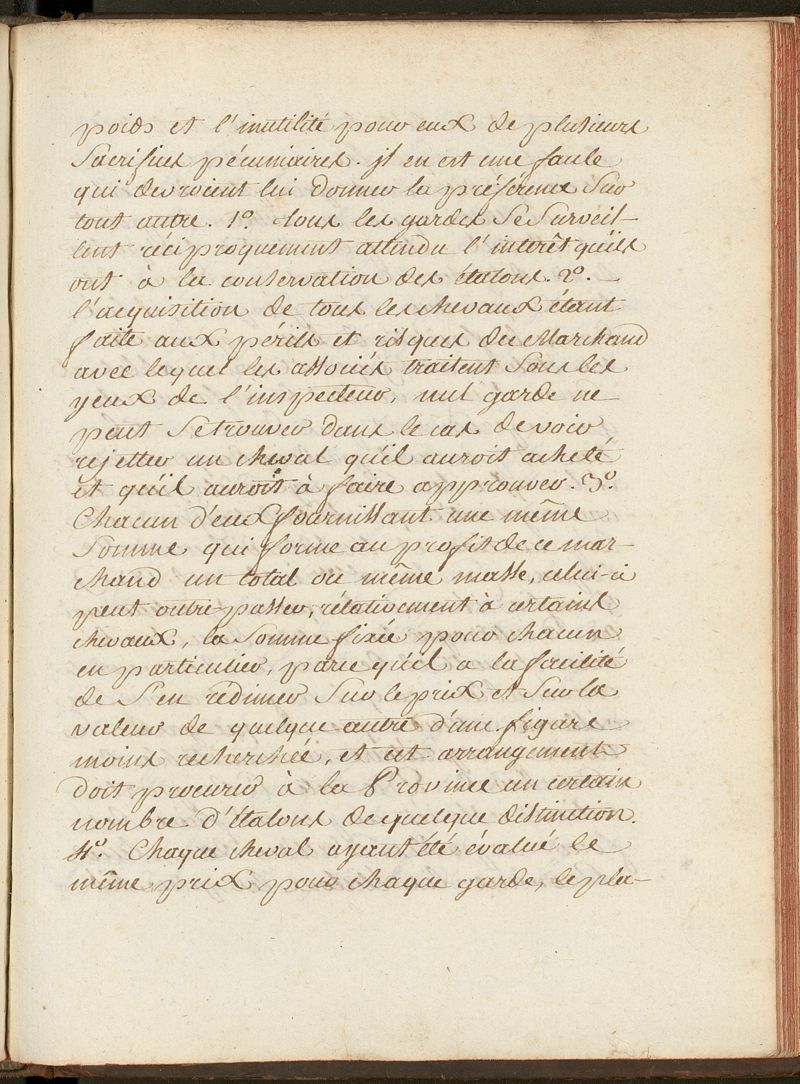 poids et l'inutilité pour eux de plusieurs
Sacrifices pécuniaires. jl en est une foule
qui devroient lui donner la préférence Sur
tout autre. 1º. tous les gardes Se Surveil-
lent réciproquement attendu l'intérêt qu'ils
ont à la conservation des étalons. 2º. -
l'acquisition de tous les chevaux étant
faite aux périls et risques du Marchand
avec lequel les associés traitent Sous les
yeux de l'inspecteur, nul garde ne
peut Se trouver dans le cas de voir
rejetter un cheval qu'il auroit acheté
et qu'il auroit à faire approuver. 3º.
Chacun d'eux fournissant une même
Somme qui forme au profit de ce mar-
chand un total ou même masse, celui-ci
peut outre-passer, rélativement à certains
chevaux, la Somme fixée pour chacun
en particulier, parce qu'il a la facilité
de S'en rédimer Sur le prix et Sur la
valeur de quelque autre d'une figure
moins recherchée, et cet arrangement
doit procurer à la Province un certain
nombre d'étalons de quelque distinction.
4º. Chaque cheval ayant été évalué le
même prix pour chaque garde, le pla-